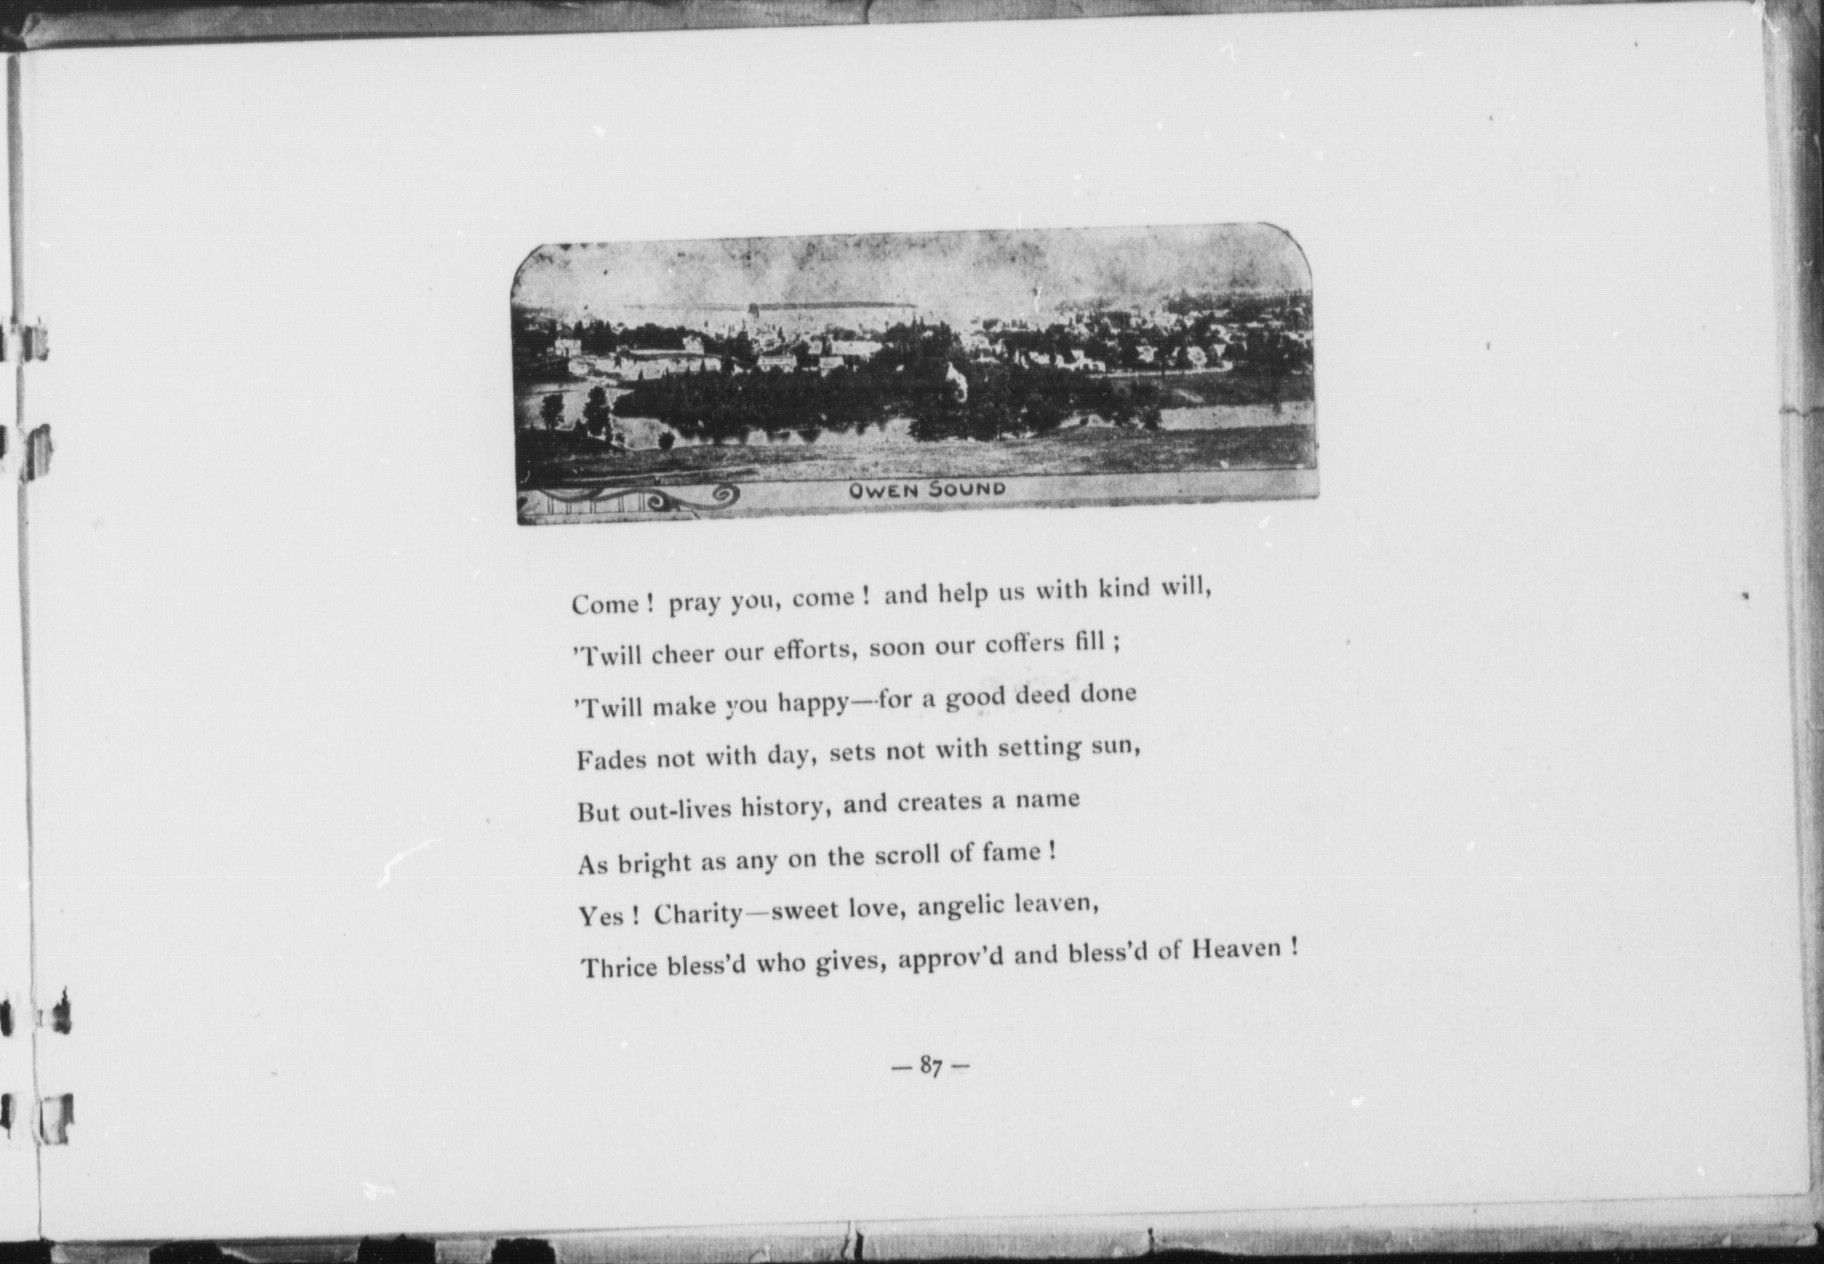 OWEN SOUND
Come ! pray you, come ! and help us with kind will,
’Twill cheer our efforts, soon our coffers fill ;
’Twill make you happy—for a good deed done
Fades not with day, sets not with setting sun,
But out-lives history, and creates a name
As bright as any on the scroll of fame !
Yes ! Charity—sweet love, angelic leaven,
Thrice bless’d who gives, approv’d and bless’d of Heaven !
— 87 —